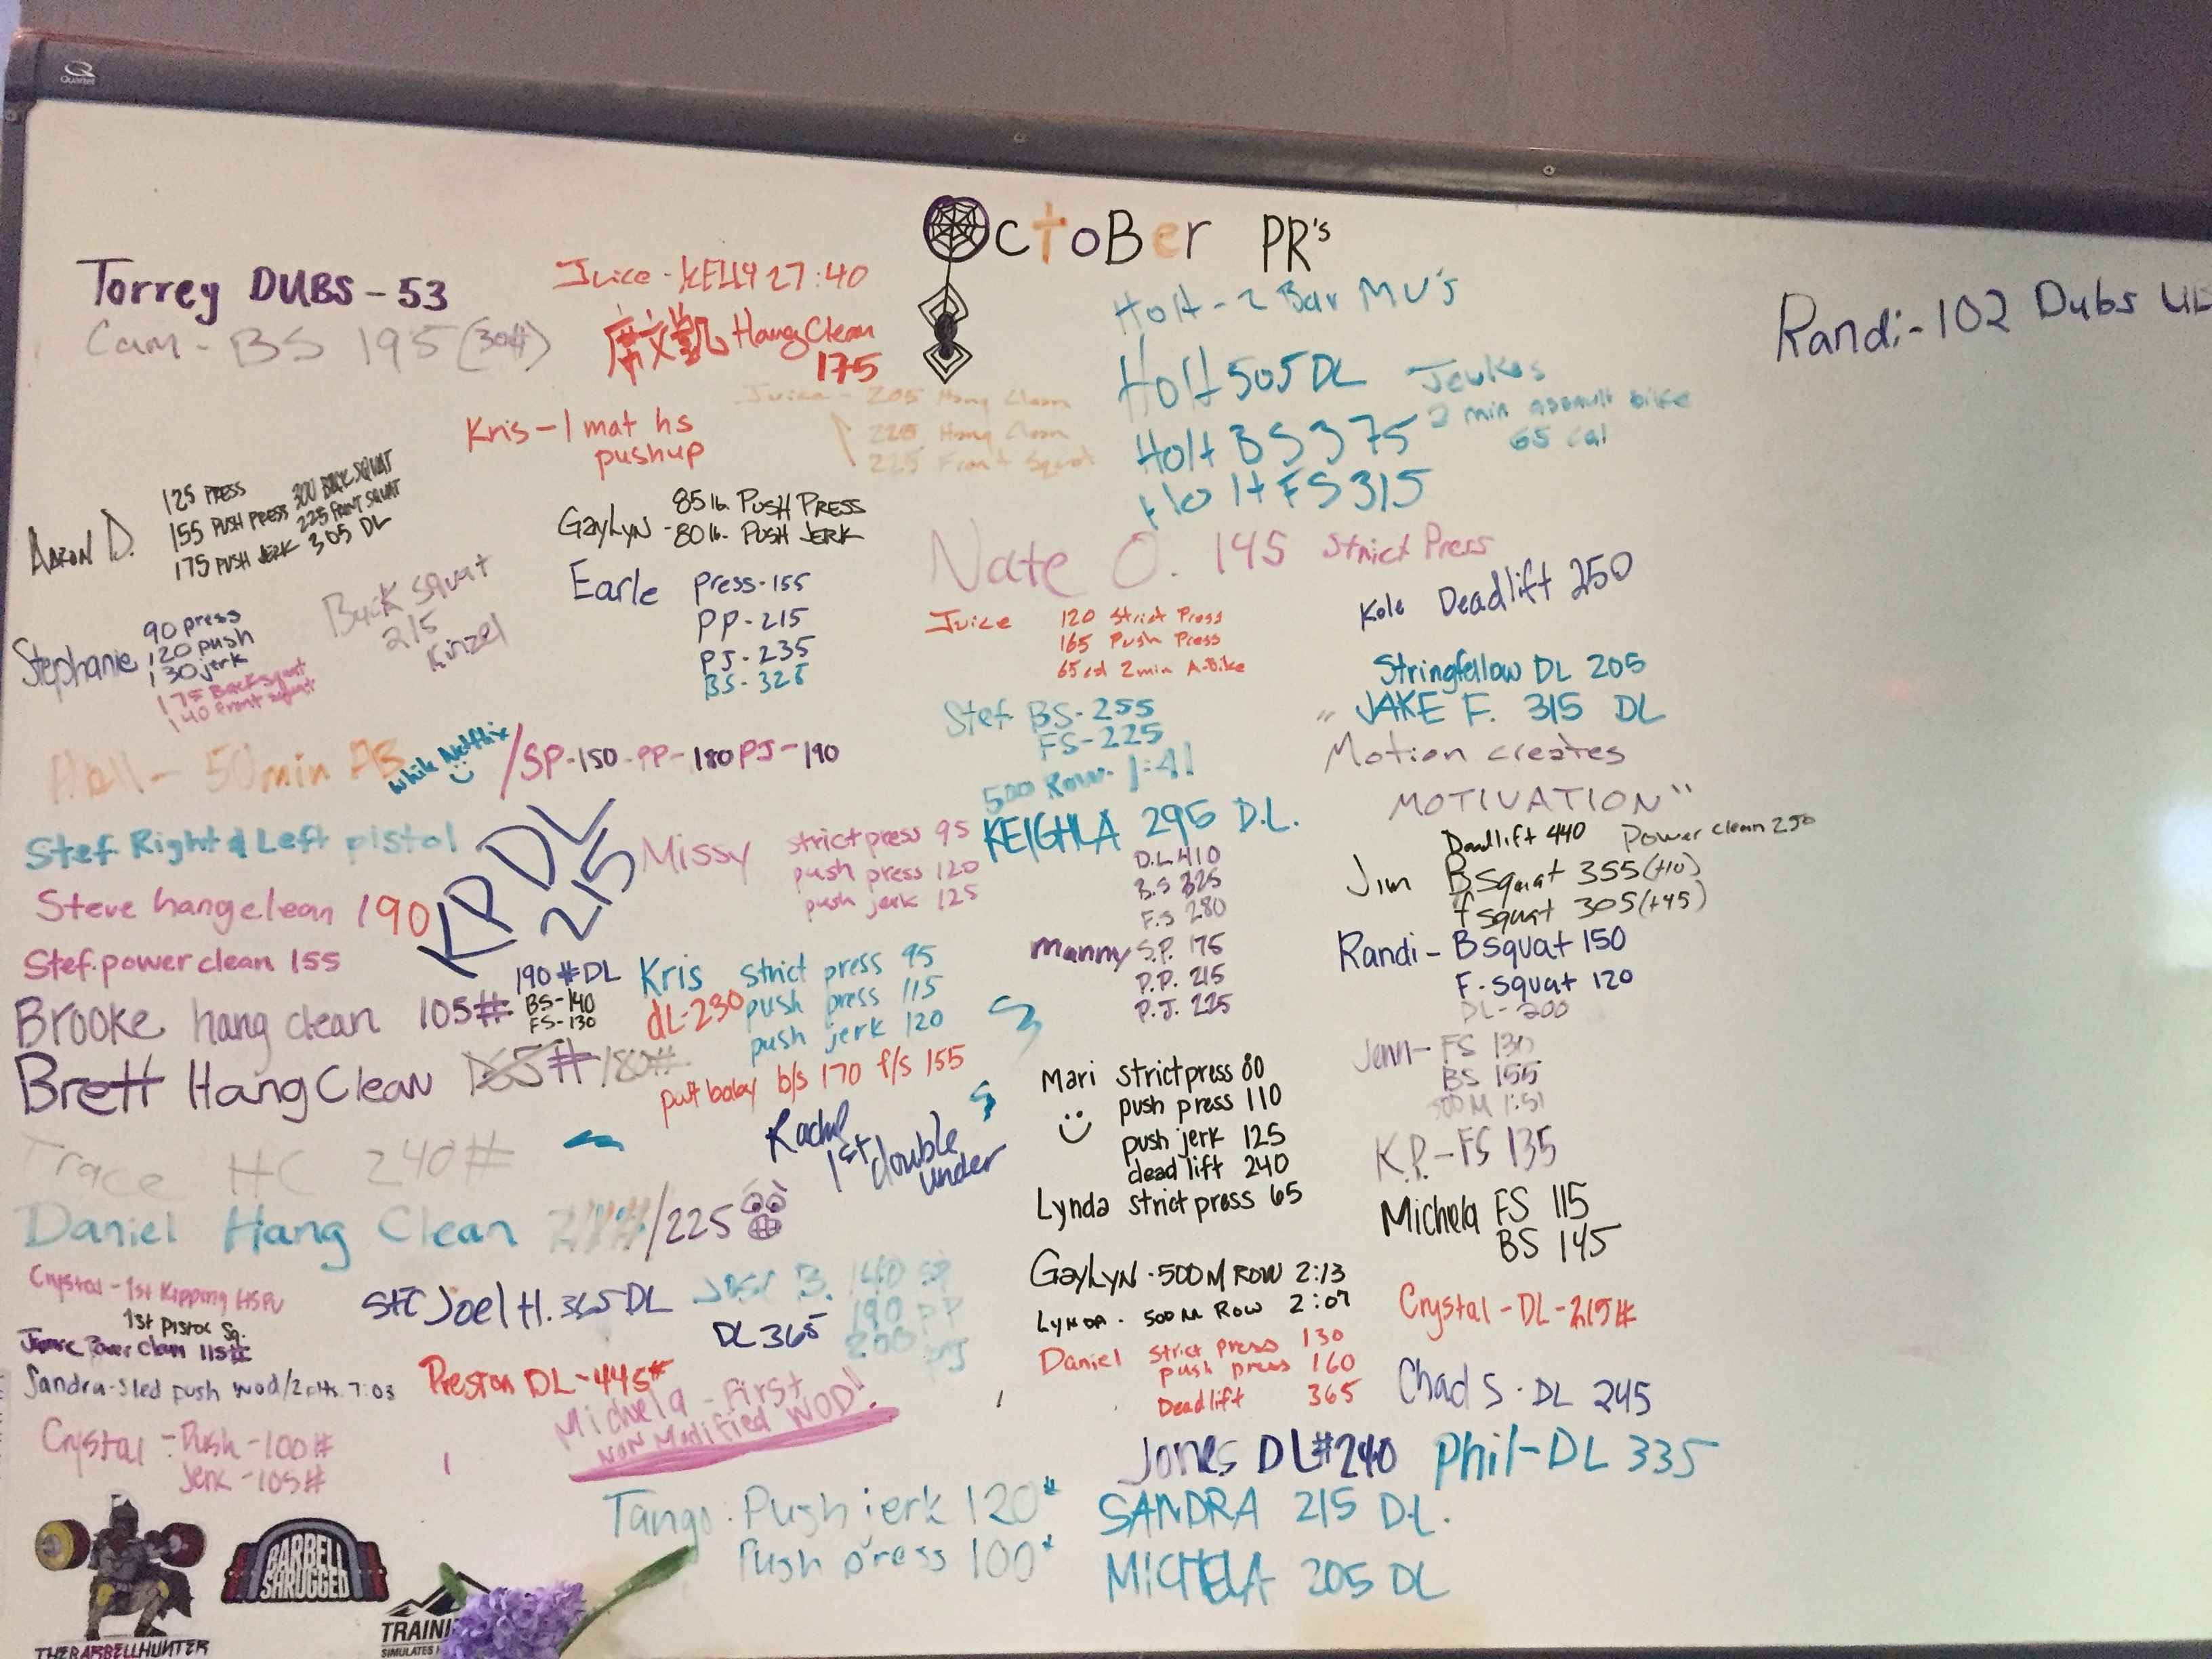 Quartet
OctoBer PR's
Torrey DUBS - 53
Cam - BS 195 (30#)
Juice - KELLY 27:40
文凱 Hang Clean
175
Kris - 1 mat hs
pushup
Juice - 205 Hang Clean
220 Hang Clean
225 Front Squat
Holt - 2 Bar MU's
Holt 505 DL
Holt BS 375
Holt FS 315
Jeukes
2 min assault bike
65 cal
Randi - 102 Dubs
Aaron D.
125 PRESS
155 PUSH PRESS
175 PUSH JERK
300 BACK SQUAT
225 FRONT SQUAT
305 DL
GayLyn - 85 lb. PUSH PRESS
80 lb. PUSH JERK
Stephanie
90 press
120 push
130 jerk
175 Back squat
140 front squat
Back squat
215
Kinzel
Earle Press - 155
PP - 215
PJ - 235
BS - 325
Nate O. 145 Strict Press
Juice 120 Strict Press
165 Push Press
65 cal 2min A-Bike
Kole Deadlift 250
Stringfellow DL 205
JAKE F. 315 DL
"Motion creates
MOTIVATION"
Stef BS - 255
FS - 225
500 Row - 1:41
Hall - 50 min AB
while Netflix
/SP - 150 - PP - 180 PJ - 190
Stef Right & Left pistol
KP DL
215
Missy strict press 95
push press 120
push jerk 125
KEIGHLA 295 D.L.
Steve hang clean 190
Stef. power clean 155
Manny
D.L. 410
B.S 325
F.S 280
S.P. 175
P.P. 215
P.J. 225
Jim
Deadlift 440 Power clean 250
B Squat 355 (+10)
f squat 305 (+45)
Randi - B squat 150
F - squat 120
DL - 200
Brooke hang clean 105#
190 # DL
BS - 140
FS - 130
Kris strict press 95
push press 115
push jerk 120
dL - 230
b/s 170 f/s 155
Brett Hang Clean 165# 180#
Rachel
1st double
under
Trace HC 240#
Daniel Hang Clean /225
Mari strict press 80
push press 110
push jerk 125
dead lift 240
Lynda strict press 65
Jenn - FS 130
BS 155
500 M 1:51
K.P. - FS 135
Michela FS 115
BS 145
Crystal - 1st Kipping HSPU
1st Pistol Sq.
Power Clean 115#
Sandra - Sled push wod/2 plts. 7:03
Crystal - Push - 100#
Jerk - 105#
Joel H. 365 DL
Preston DL - 445#
B. 140 SP
190 PP
200 PJ
DL 365
Michela - First
Non Modified WOD!
GayLyn - 500M ROW 2:13
Lynda - 500 M Row 2:07
Daniel strict press 130
push press 160
Deadlift 365
Crystal - DL - 215#
Chad S. DL 245
Jones DL #240
Phil - DL 335
Tango. Push jerk 120#
Push press 100#
SANDRA 215 DL.
MICHELA 205 DL
THEBARBELLHUNTER
BARBELL
SHRUGGED